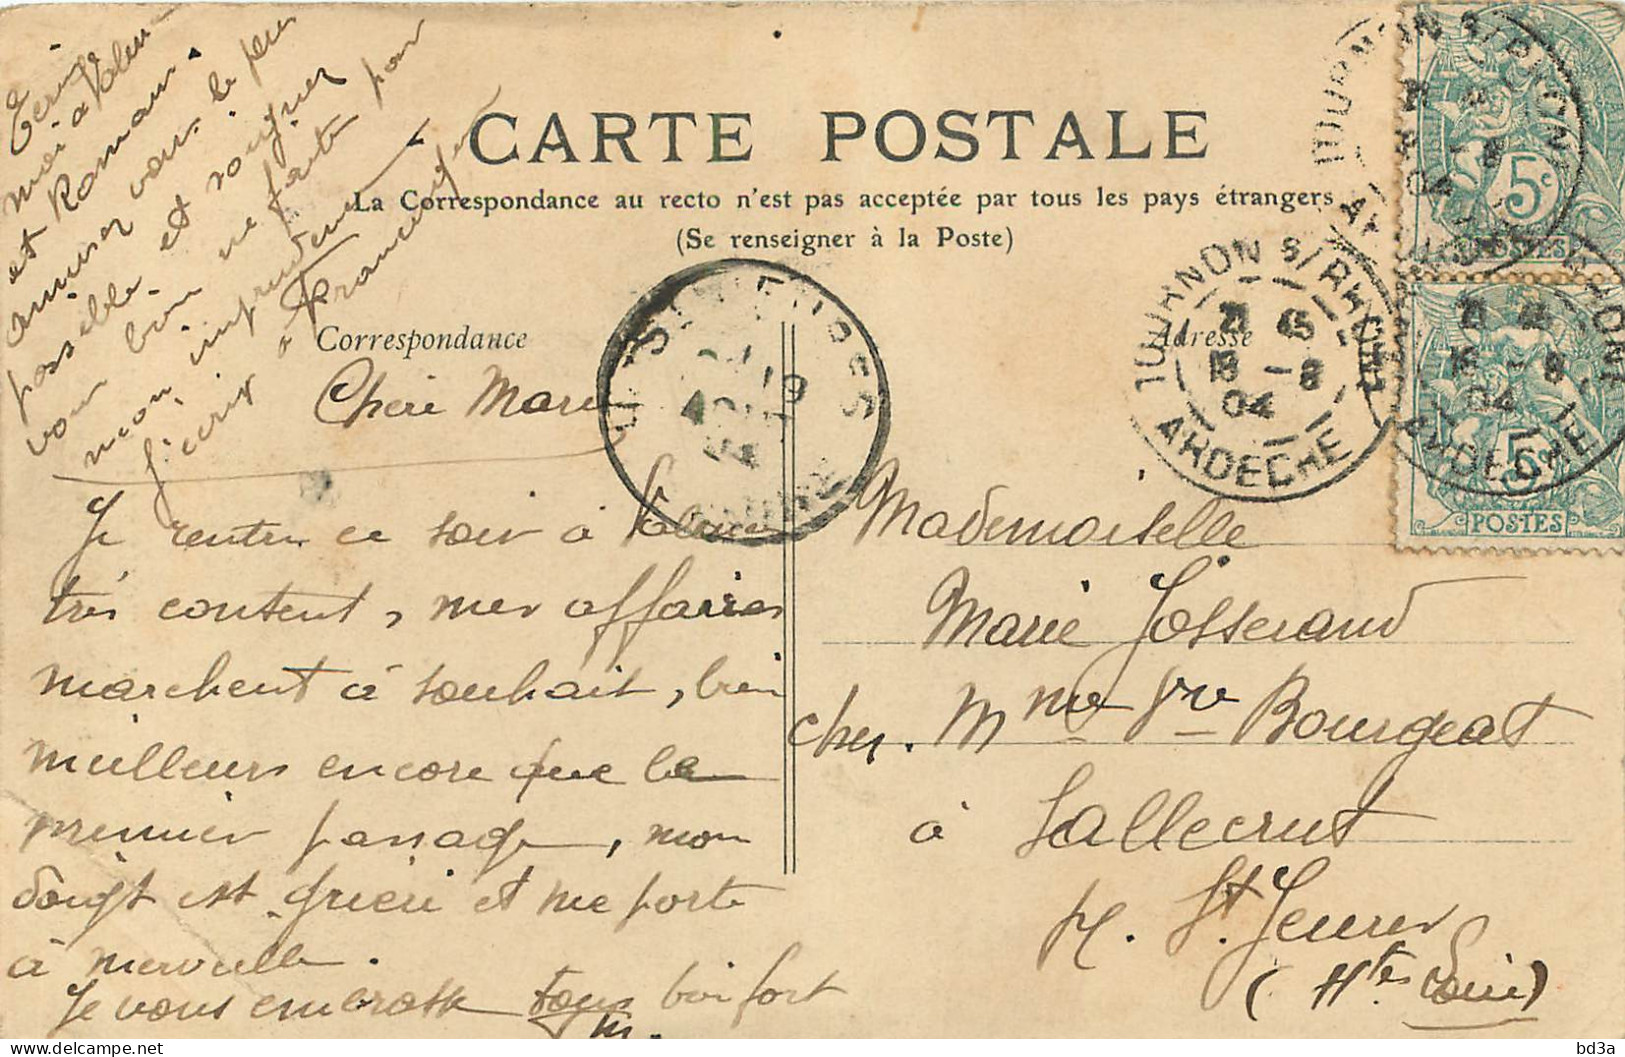 Ecrivez
moi à Valence
et Romans.
amusez vous le plus
possible et soignez
vous bien ne faites pas
mon imprudence
J'écris à Francisque
CARTE POSTALE
La Correspondance au recto n'est pas acceptée par tous les pays étrangers
(Se renseigner à la Poste)
Correspondance
Adresse
TOURNON S/ RHONE
21 45
18 - 8
04
ARDECHE
TOURNON S/ RHONE
18 - 8
04
ARDECHE
5c
POSTES
5c
POSTES
Chère Marie
Je rentre ce soir à Valence
très content, mes affaires
marchent à souhait, bien
meilleurs encore que le
premier passage, mon
doigt est guéri et me porte
à merveille.
Je vous embrasse tous bien fort
m.
Mademoiselle
Marie Josserand
chez. Mme Vve Bourgeat
à Sallecrut
St Jeures
(Hte Loire)
bd3a